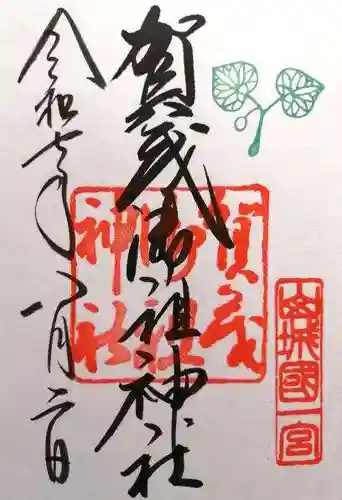 山城國一宮
賀茂御祖神社
賀茂御祖神社
令和七年八月二日